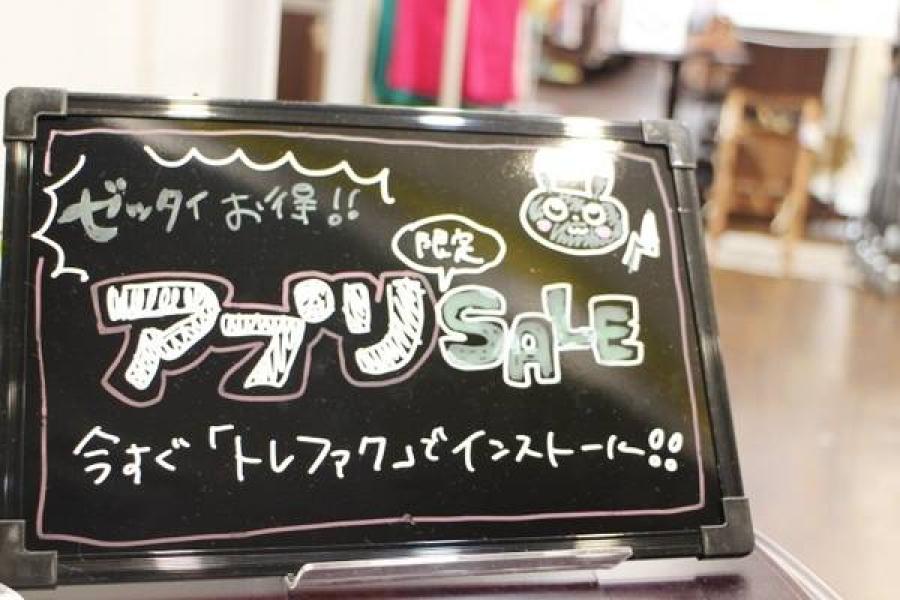 ゼッタイお得!!
限定
アプリSALE
今すぐ「トレファク」でインストール!!